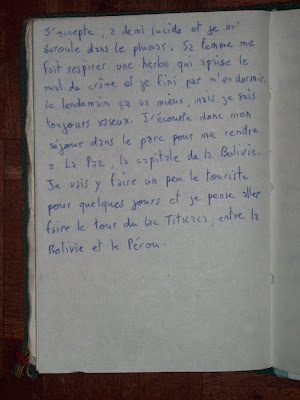 J'accepte, à demi lucide et je m'
écroule dans le plumar. Sa femme me
fait respirer une herbe qui apaise le
mal de crâne et je fini par m'endormir.
Le lendemain ça va mieux, mais je suis
toujours vaseux. J'écourte donc mon
séjour dans le parc pour me rendre
à La Paz, la capitale de la Bolivie.
Je vais y faire un peu le touriste
pour quelques jours et je pense aller
faire le tour du lac Titicaca, entre la
Bolivie et le Pérou.